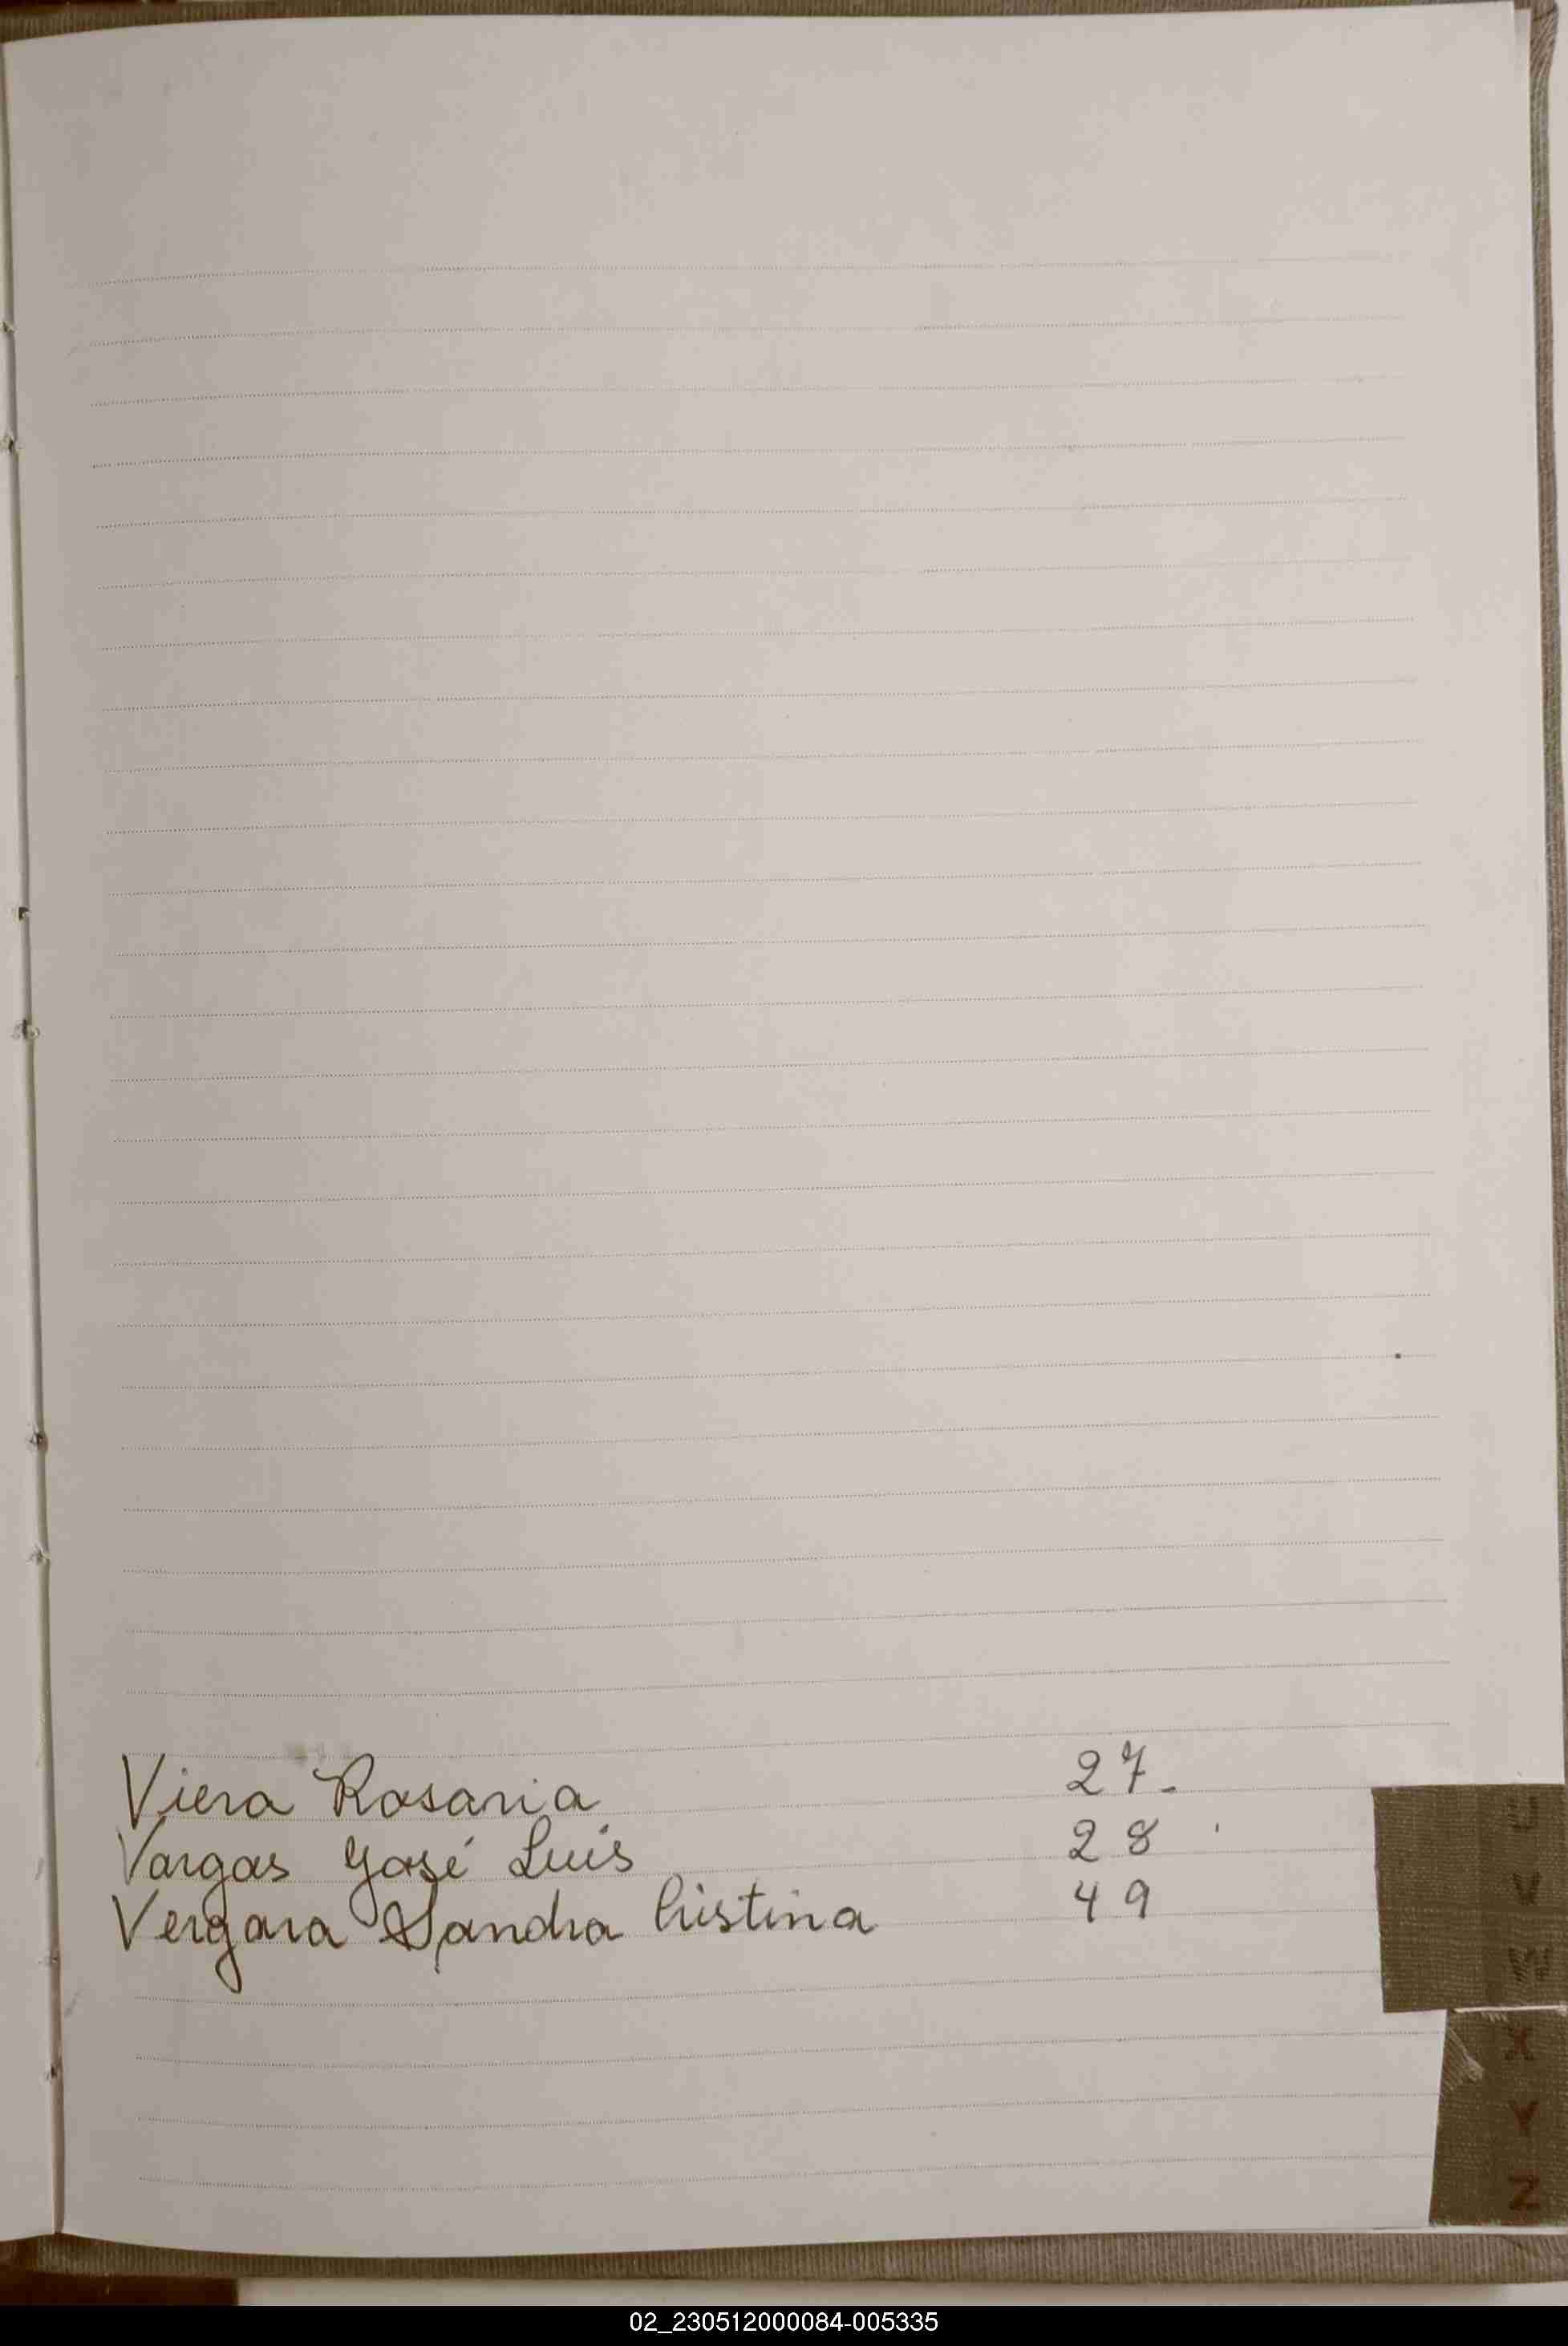 Viera Rosaria 27.
Vargas José Luis 28
Vergara Sandra Cristina 49
X
Y
Z
02_230512000084-005335